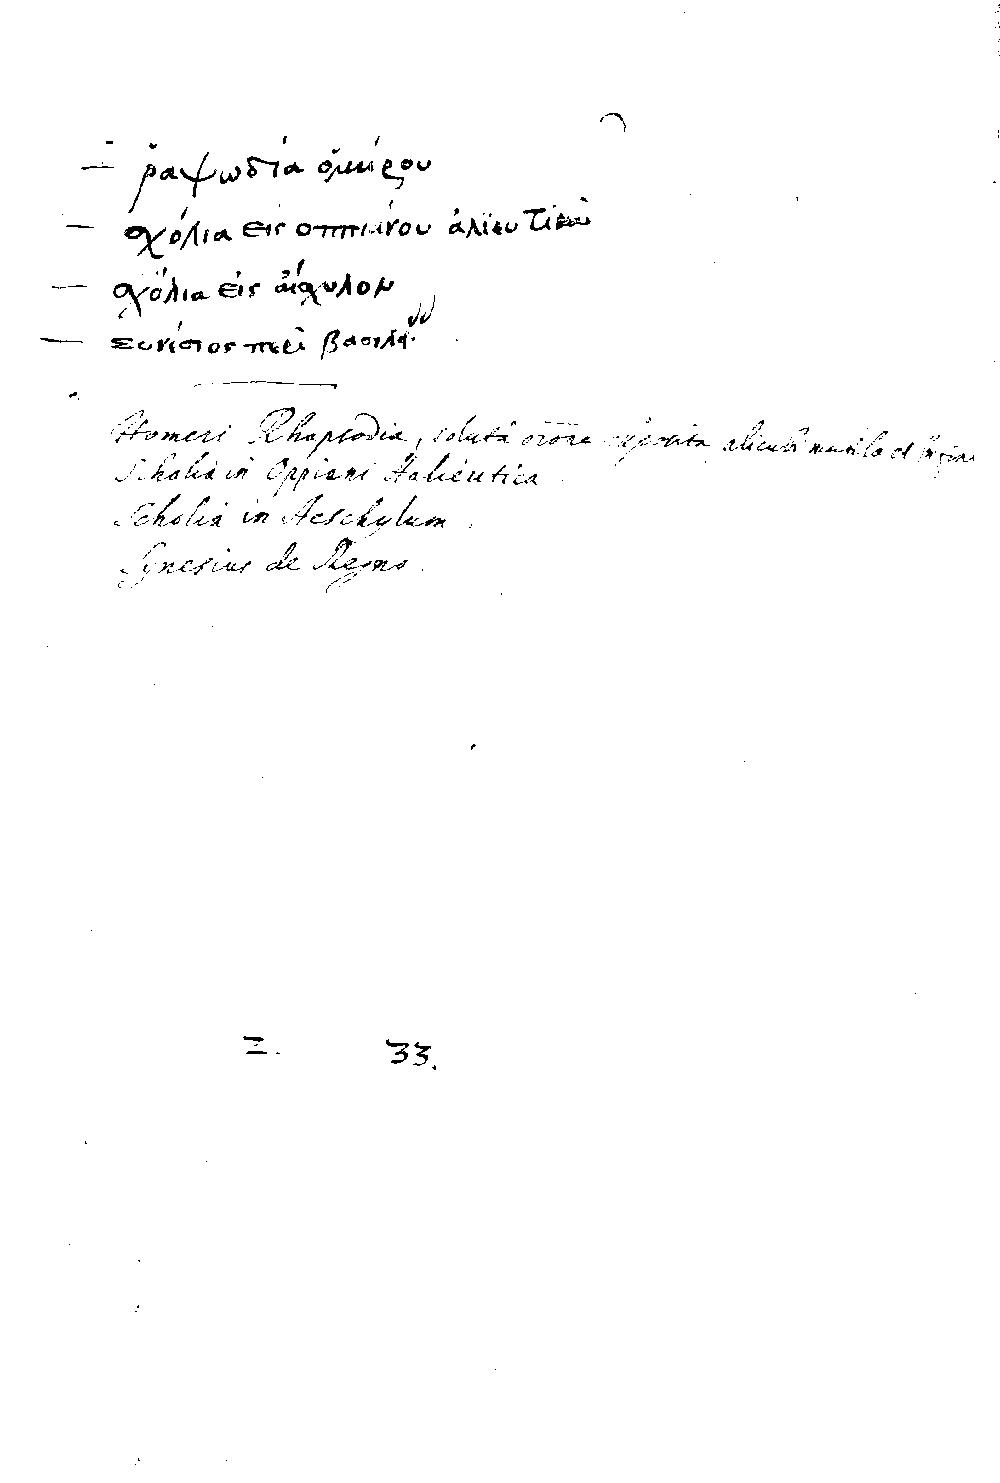 — ῥαψωδία ὁμήρου
— σχόλια εις οππιάνου ἁλιευτικὰ
— σχόλια εἰς αἴσχυλον
— συνέσιος περὶ βασιλεί
Homeri Rhapsodia, solutâ orõne exposita
Scholia in Oppiani Halieutica
Scholia in Aeschylum.
Synesius de Regno.
Ξ. 33.